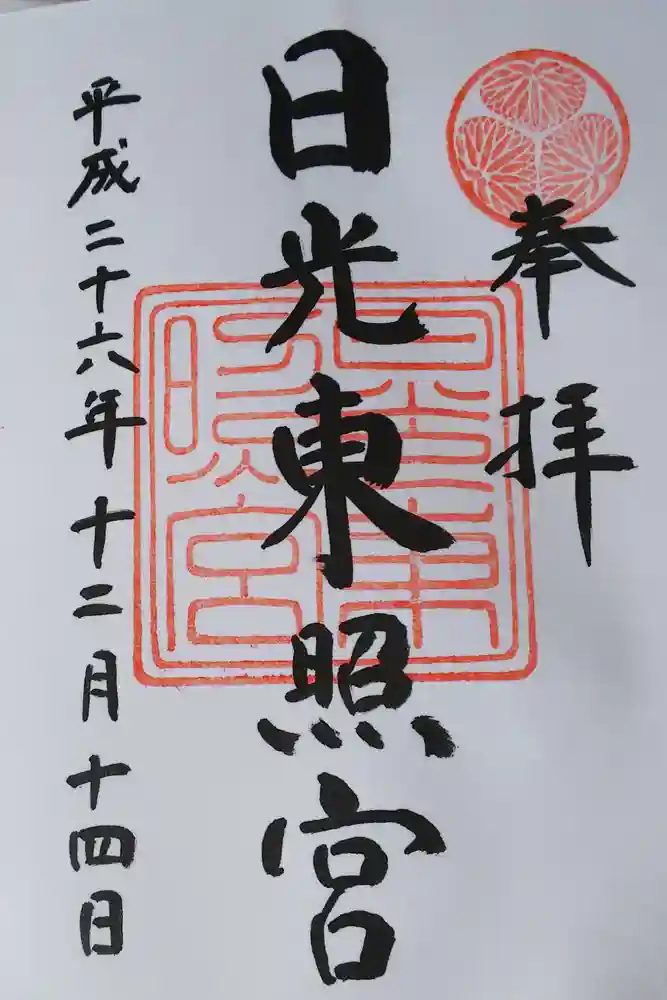 奉拝
日光東照宮
平成二十六年十二月十四日
日光東照宮